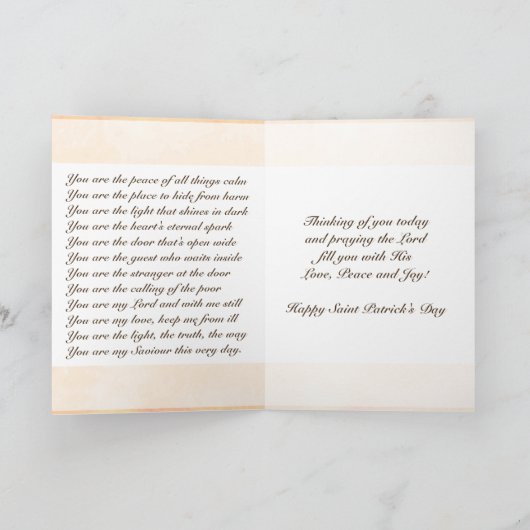 You are the peace of all things calm
You are the place to hide from harm
You are the light that shines in dark
You are the heart's eternal spark
You are the door that's open wide
You are the guest who waits inside
You are the stranger at the door
You are the calling of the poor
You are my Lord and with me still
You are my love, keep me from ill
You are the light, the truth, the way
You are my Saviour this very day.
Thinking of you today
and praying the Lord
fill you with His
Love, Peace and Joy!
Happy Saint Patrick's Day